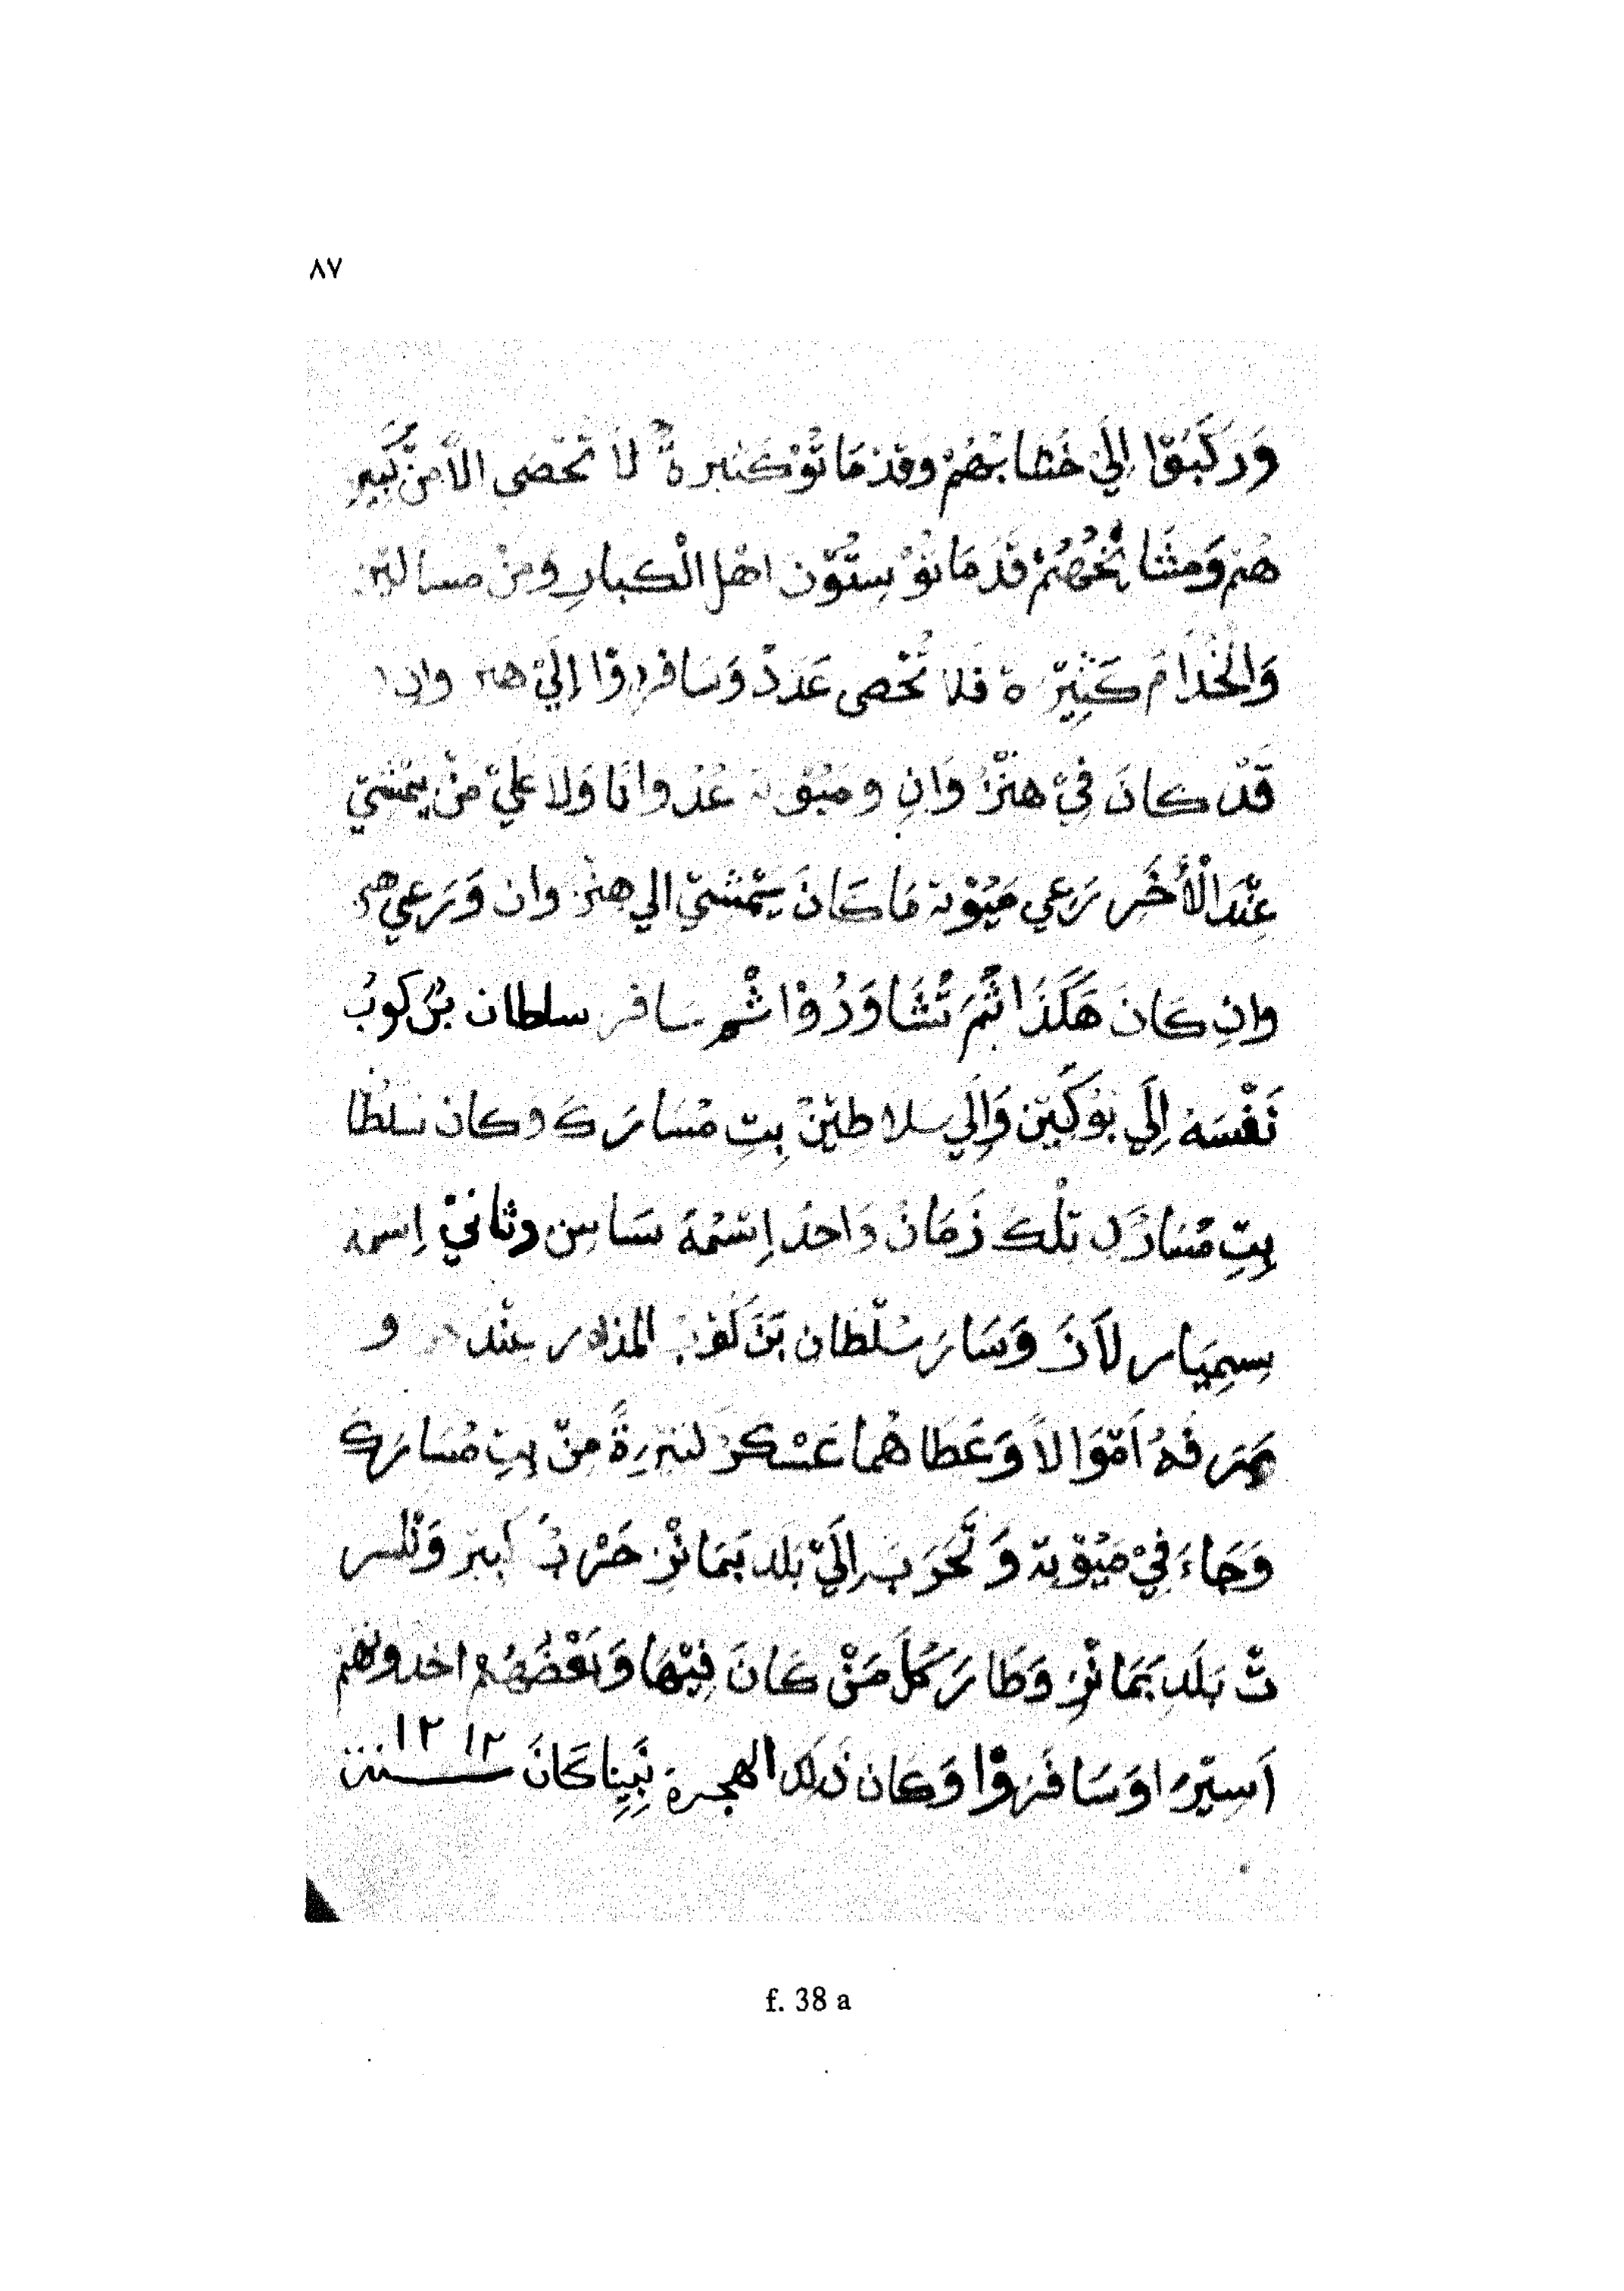 ٨٧
وَرَكَبُوْا اِلَيْ خَشَابِهُمْ وقدْ مَاتُوْ كثيرة لا تحْصَى الاّ مِنْ كَبِيرِ
هُمْ وَمشَائخُهُمْ قَدْ مَاتُوْ سِتُّوْن اهْل الْكبارِ وَمِنْ مساكين
وَالْخُدَّامُ كَثِيْرَة فلا تُحْصى عَدَدْ وَسَافرُوْا اِلَيْ هنز وانِ
قَدْ كانَ فِيْ هنْز وَانِ وميُوْتة عُدْوانًا وَلا عَلِيْ مَنْ يمْشيْ
عِنْدَ الْأخَر رَعِي مَيُوْتة مَا كَانَ يمْشيْ الي هنز وان وَرَعِي هنز
وان كَانَ هَكَذَا ثُمّ تُشَاوَرُوْا ثُم سَافر سلطان بَنْ كوبُ
نَفْسَه اِلَي بُوْكِيْن وَاِلَي سلاطيْن بِتِ مْسَارَك وكان سلطا
بِتِ مْسَارَك تِلْك زَمَان وَاحدُ اِسْمُهُ سَاسِن وثانيْ اِسْمه
سِمِيَار لاَنَ وَسَارَ سُلْطان بَنَ كُوْب المذكور عِنْدهم و
صَرَفَهُ اَمْوَالاً وَعَطَا هُمَا عَسْكرُ كثيرةً مِنْ بِتِ مْسَارَك
وَجَاءَ فِيْ مَيُوْتة وَتحَرَبَ اِلَيْ بَلَد بَمَانْز حَرْبُ كبير وَتكسر
تْ بَلَد بَمَانْزِ وَطَارَ كُلّ مَنْ كَانَ فِيْهَا وَبَعْضُهُمْ اخدوهُمْ
اَسِيْرَا وَسَافَرُوْا وَكان ذلِك الهجرة نَبِينا كَانَ سنة ١٢١٢
f. 38 a